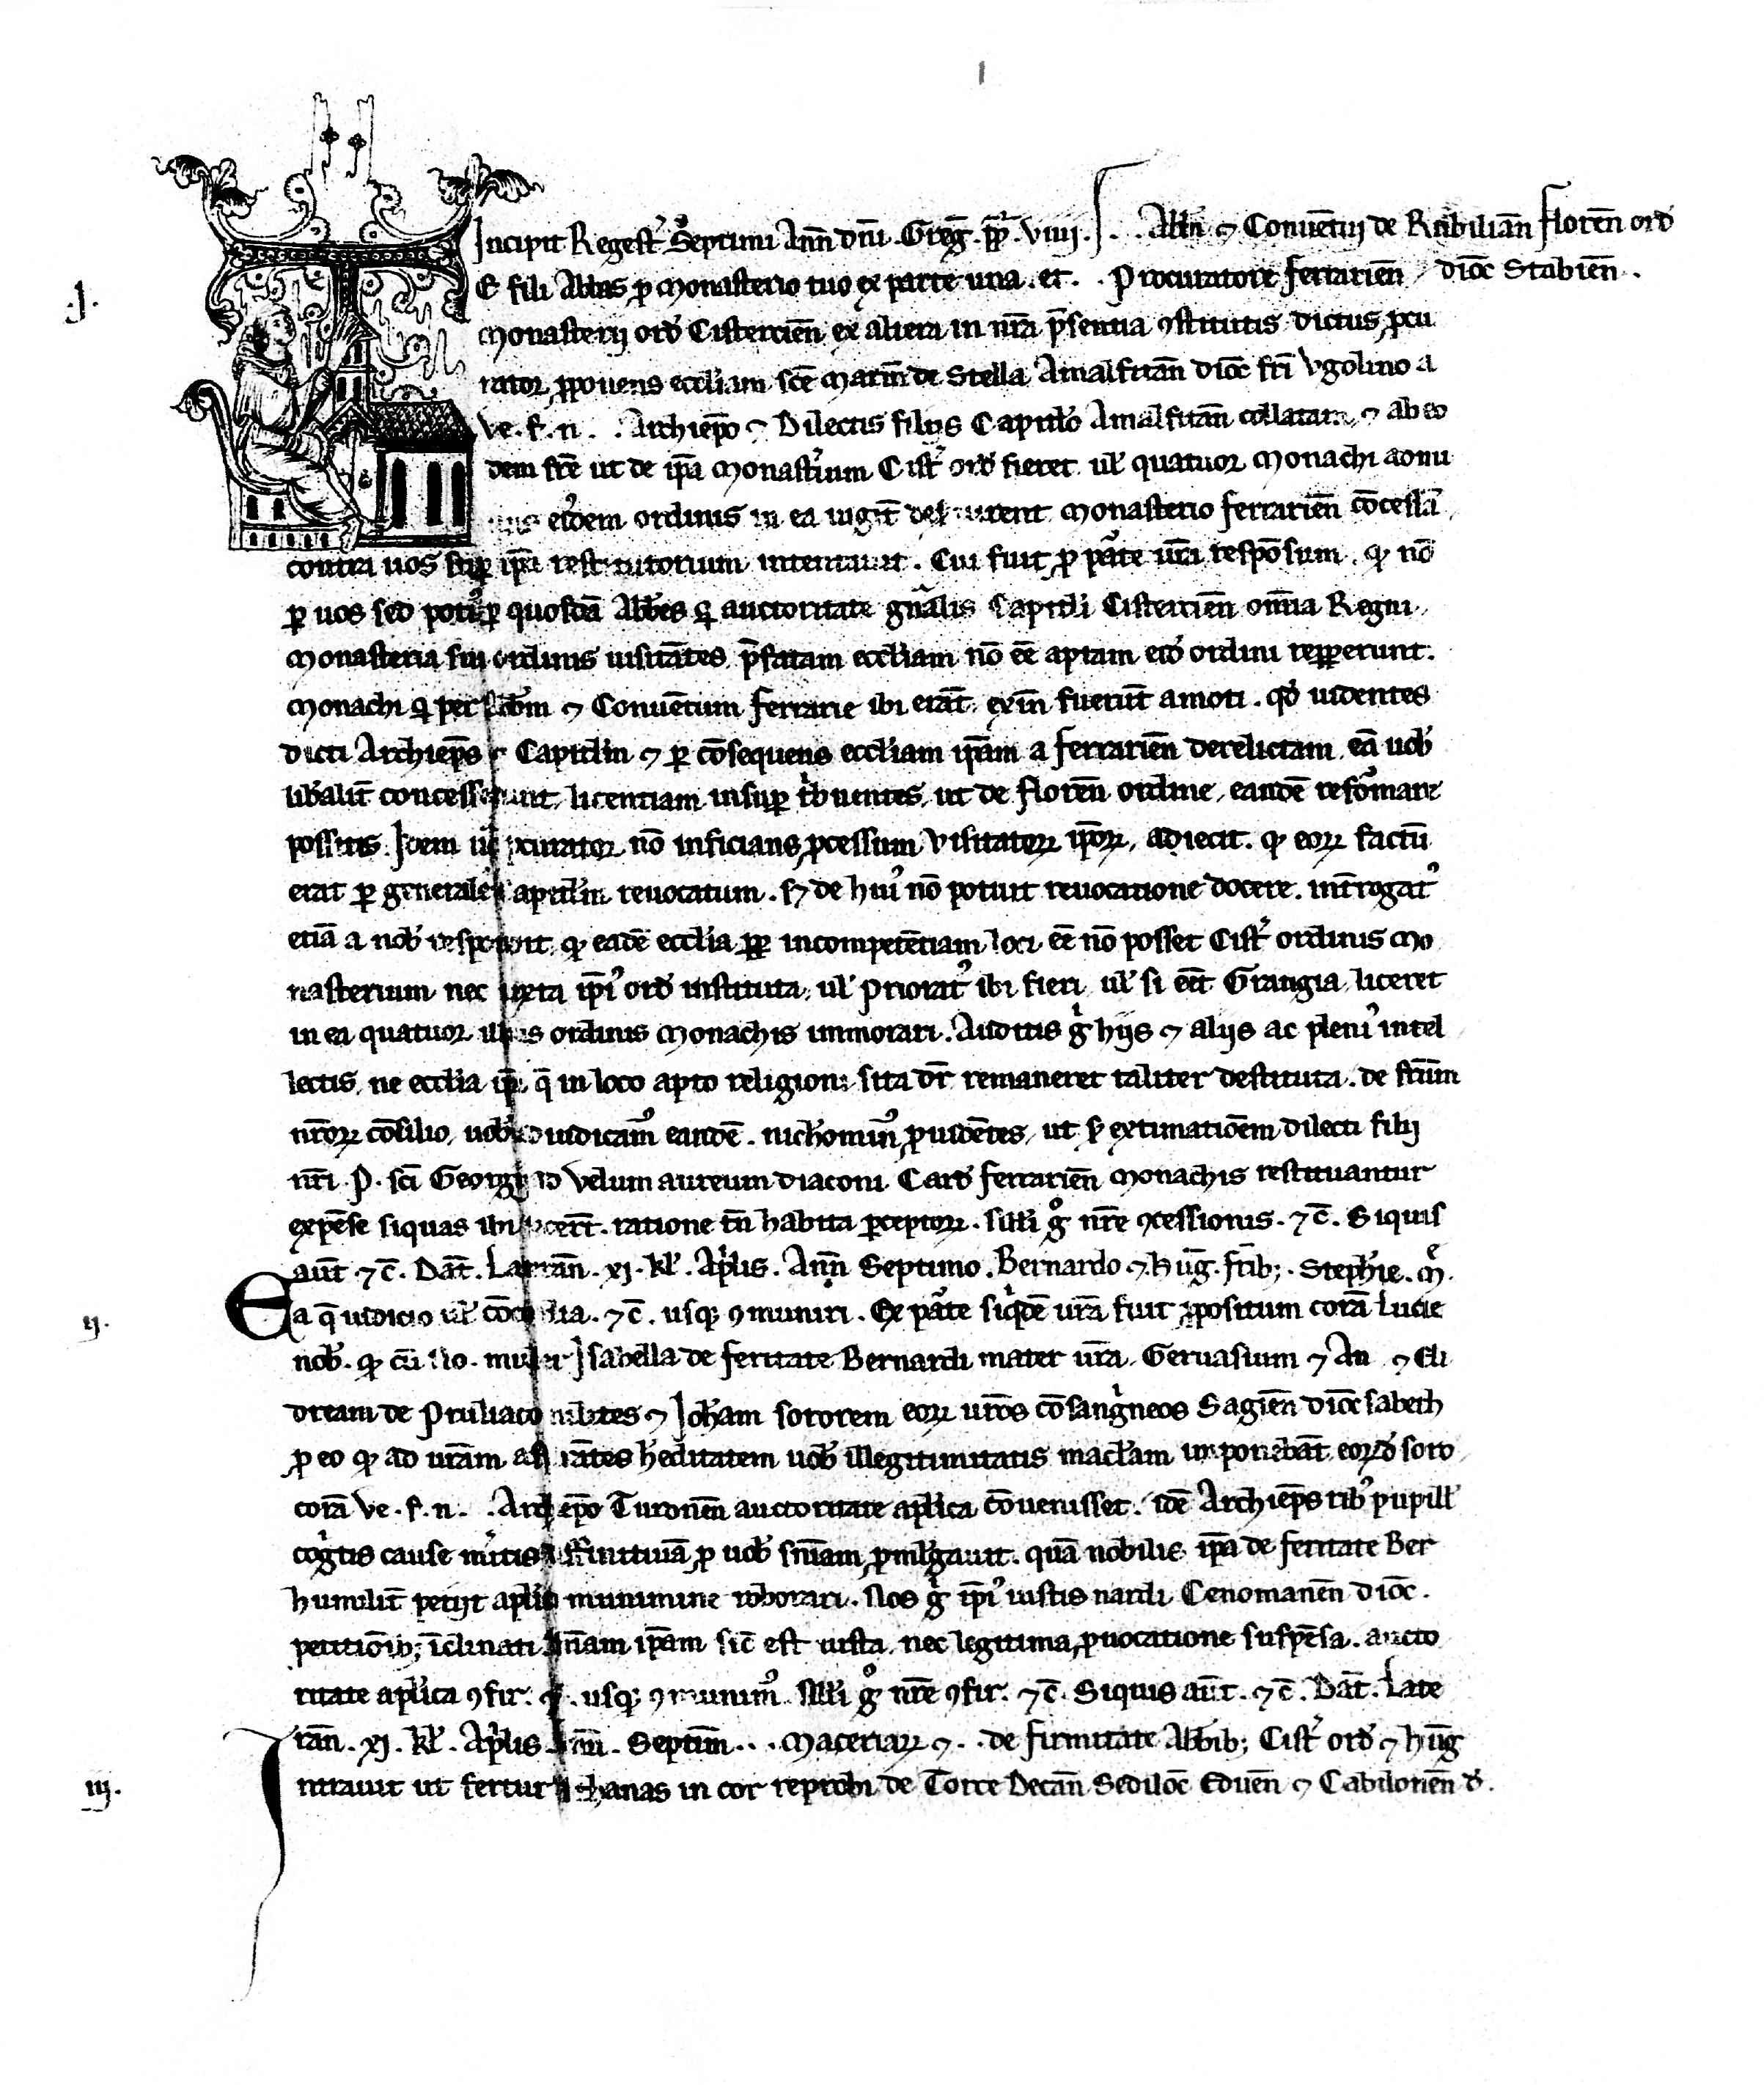 I
Incipit Regest̅ Septimi Ann̅ dn̅i . Greg̅ . pp̅ . viiij . . . Abb̅i ⁊ Conue̅tui de Florē̅n ord̕
.j. E fili Abbas ꝑ monasterio tuo ex parte una . et . . Procuratore ferrarien̅ dioc̅ Stabien̅ .
monasterij ord̕ Cistercien̅ ex altera in nr̅a pr̅sentia ꝯstitutis dictus ꝓcu
rator ꝓponens eccl̕iam sc̅e marie̅ de Stella Amalfitan̅ dioc̅ fr̅i Vgolino a
ve . f . n . . Archiep̅o ⁊ Dilectis filijs Capitul̕o Amalfitan̅ collatam ⁊ ab eo
dem fr̅e ut de ip̅a monast̕ium Cist̕ ord̕ fieret ul̕ quatuor monachi
eı̕dem ordinis in ea iugit̅ monasterio ferrarien̅ co̅cessa̅
contra uos sup̲ ip̅a restitutorium intentauit . Cui fuit ꝓ pa̕te ur̅a respo̅sum . ꝙ no̅
ꝑ uos sed poti᾽ ꝑ quosda̅ Abb̅es q̕ auctoritate gn̅alis Capitl̕i Cistercien̅ omn̅ia Regni
monasteria sui ordinis uisita̅tes pr̅fatam eccl̕iam no̅ ee̅ aptam ei᾽ ordini reppererunt .
monachi q̕ per Abb̅em ⁊ Conue̅tum ferrarie ibi era̅t exin̅ fueru̅t amoti . qd̕ uidentes
dicti Archiep̅s ⁊ Capitl̕m ⁊ ꝑ co̅sequens eccl̕iam ip̅am a ferrarien̅ derelictam ea̅ uob̕
lib̕alit̅ concesserunt licentiam insup̲ t̕buentes ut de floren̅ ordine eande̅ refo̕mare
possitis . Idem ul̕ ꝓcurator no̅ inficians ꝓcessum visitatoꝝ ip̅oꝝ , adiecit . ꝙ eoꝝ factu̅
erat ꝑ generale Capitl̕m reuocatum . sꝫ de hui᾽ no̅ potuit reuocatione docere . int̅rogat᾽
etia̅ a nob̕ respondit ꝙ eade̅ eccl̕ia ꝓp̲ incompete̅tiam loci ee̅ no̅ posset Cist̕ ordinis mo
nasterium nec iuxta ip̅i᾽ ord̕ instituta ul̕ priorat᾽ ibi fieri ul̕ si ee̅t Grangia liceret
in ea quatuor illius ordinis monachis immorari . Auditis g̕ hijs ⁊ alijs ac pleni᾽ intel
lectis ne eccl̕ia ip̅a q̅ in loco apto religioni sita dr̅ remaneret taliter destituta . de fr̅um
nr̅oꝝ co̅silio uob̕ adiudicam᾽ eande̅ . nich̕omin᾽ ꝓuide̅tes ut s̕ extimatio̅em dilecti filij
nr̅i . P . sc̅i Georgij ad Velum aureum diaconi Card̕ ferrarien̅ monachis restituantur
expe̅se siquas ibi fecer̅t . ratione tn̅ habita ꝑceptoꝝ . nll̕i g̕ nr̅e ꝯcessionis . ⁊c̅ . Siquis
aut̅ ⁊c̅ . Dat̅ . Lateran̅ . xj . kl̕ . Apl̕is . Ann̅ Septimo . Bernardo ⁊ hug̅ . fr̅ib; . Stephi̅e . m̕ .
ij. Ea q̅ iudicio ul̕ co̅cordia . ⁊c̅ . usqꝫ ꝯmuniri . Ex pa̕te siq̕de̅ ur̅a fuit ꝓpositum cora̅ Lucie
nob̕ . ꝙ cu̅ no . mulier Isabella de feritate Bernardi mater ur̅a Geruasium ⁊ An ⁊ Eli
dream de Pruliaco milites ⁊ Ioh̕am sororem eoꝝ ur̅os co̅sang̕neos Sagien̅ dioc̅ sabeth
ꝓ eo ꝙ ad ur̅am aspirantes h̕editatem uob̕ illegitimitatis macl̕am imponeba̅t eoꝝd̕ soro
cora̅ ve . f . n . . Archiep̅o Turonen̅ auctoritate apl̕ica co̅uenisset . ide̅ Archiep̅s rib᾽ pupill̕
cog̕tis cause m̕itis diffinitiua̅ ꝓ uob̕ sn̅iam ꝓmlgauit . qua̅ nobilis ip̅a de feritate Ber
humilit̅ petijt apl̕ico munimine roborari . Nos g̕ ip̅i᾽ iustis nardi Cenomanen̅ dioc̅ .
petitio̅ib; i̅clinati sn̅iam ip̅am sic̅ est iusta nec legitima ꝓuocatione suspe̅sa . aucto
ritate apl̕ica ꝯfir . ⁊ . usqꝫ ꝯmunim᾽ . Nll̕i g̕ nr̅e ꝯfir . ⁊c̅ . Siquis aut̅ . ⁊c̅ . Dat̅ . Late
ran̅ . xj . kl̕ . Apl̕is Ann̅ . Septim̅ . . . maceriaꝝ ⁊ . . de firmitate Abb̅ib; Cist̕ ord̕ ⁊ hug̅
iij. Intrauit ut fertur Sathanas in cor reprobi de Torce Decan̅ Sediloc̅ Eduen̅ ⁊ Cabilonen̅ d̕ .